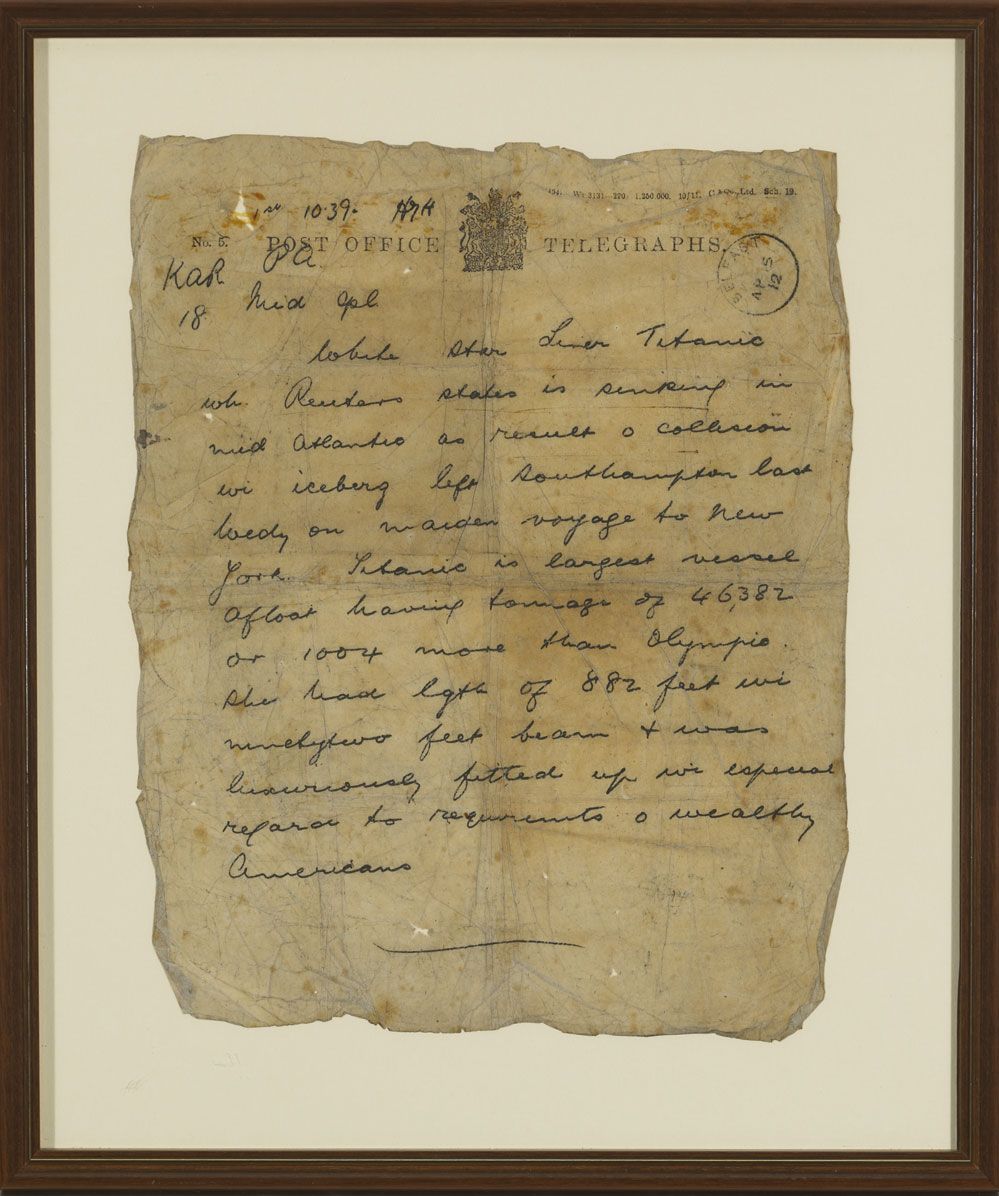 Wt 3131 220 1,250,000. 10/11. C & Co., Ltd. Sch. 19.
1st 10.39.
No. 5. POST OFFICE TELEGRAPHS.
BELFAST AP 15 12
KaR PA
18 Mid Gpl
White Star Liner Titanic
wh Reuters states is sinking in
mid atlantic as result o collision
wi iceberg left Southampton last
Wedy on maiden voyage to New
York. Titanic is largest vessel
afloat having tonnage of 46,382
or 1004 more than Olympic.
She had lgth of 882 feet wi
ninetytwo feet beam + was
luxuriously fitted up wi especial
regard to requirmts o wealthy
Americans